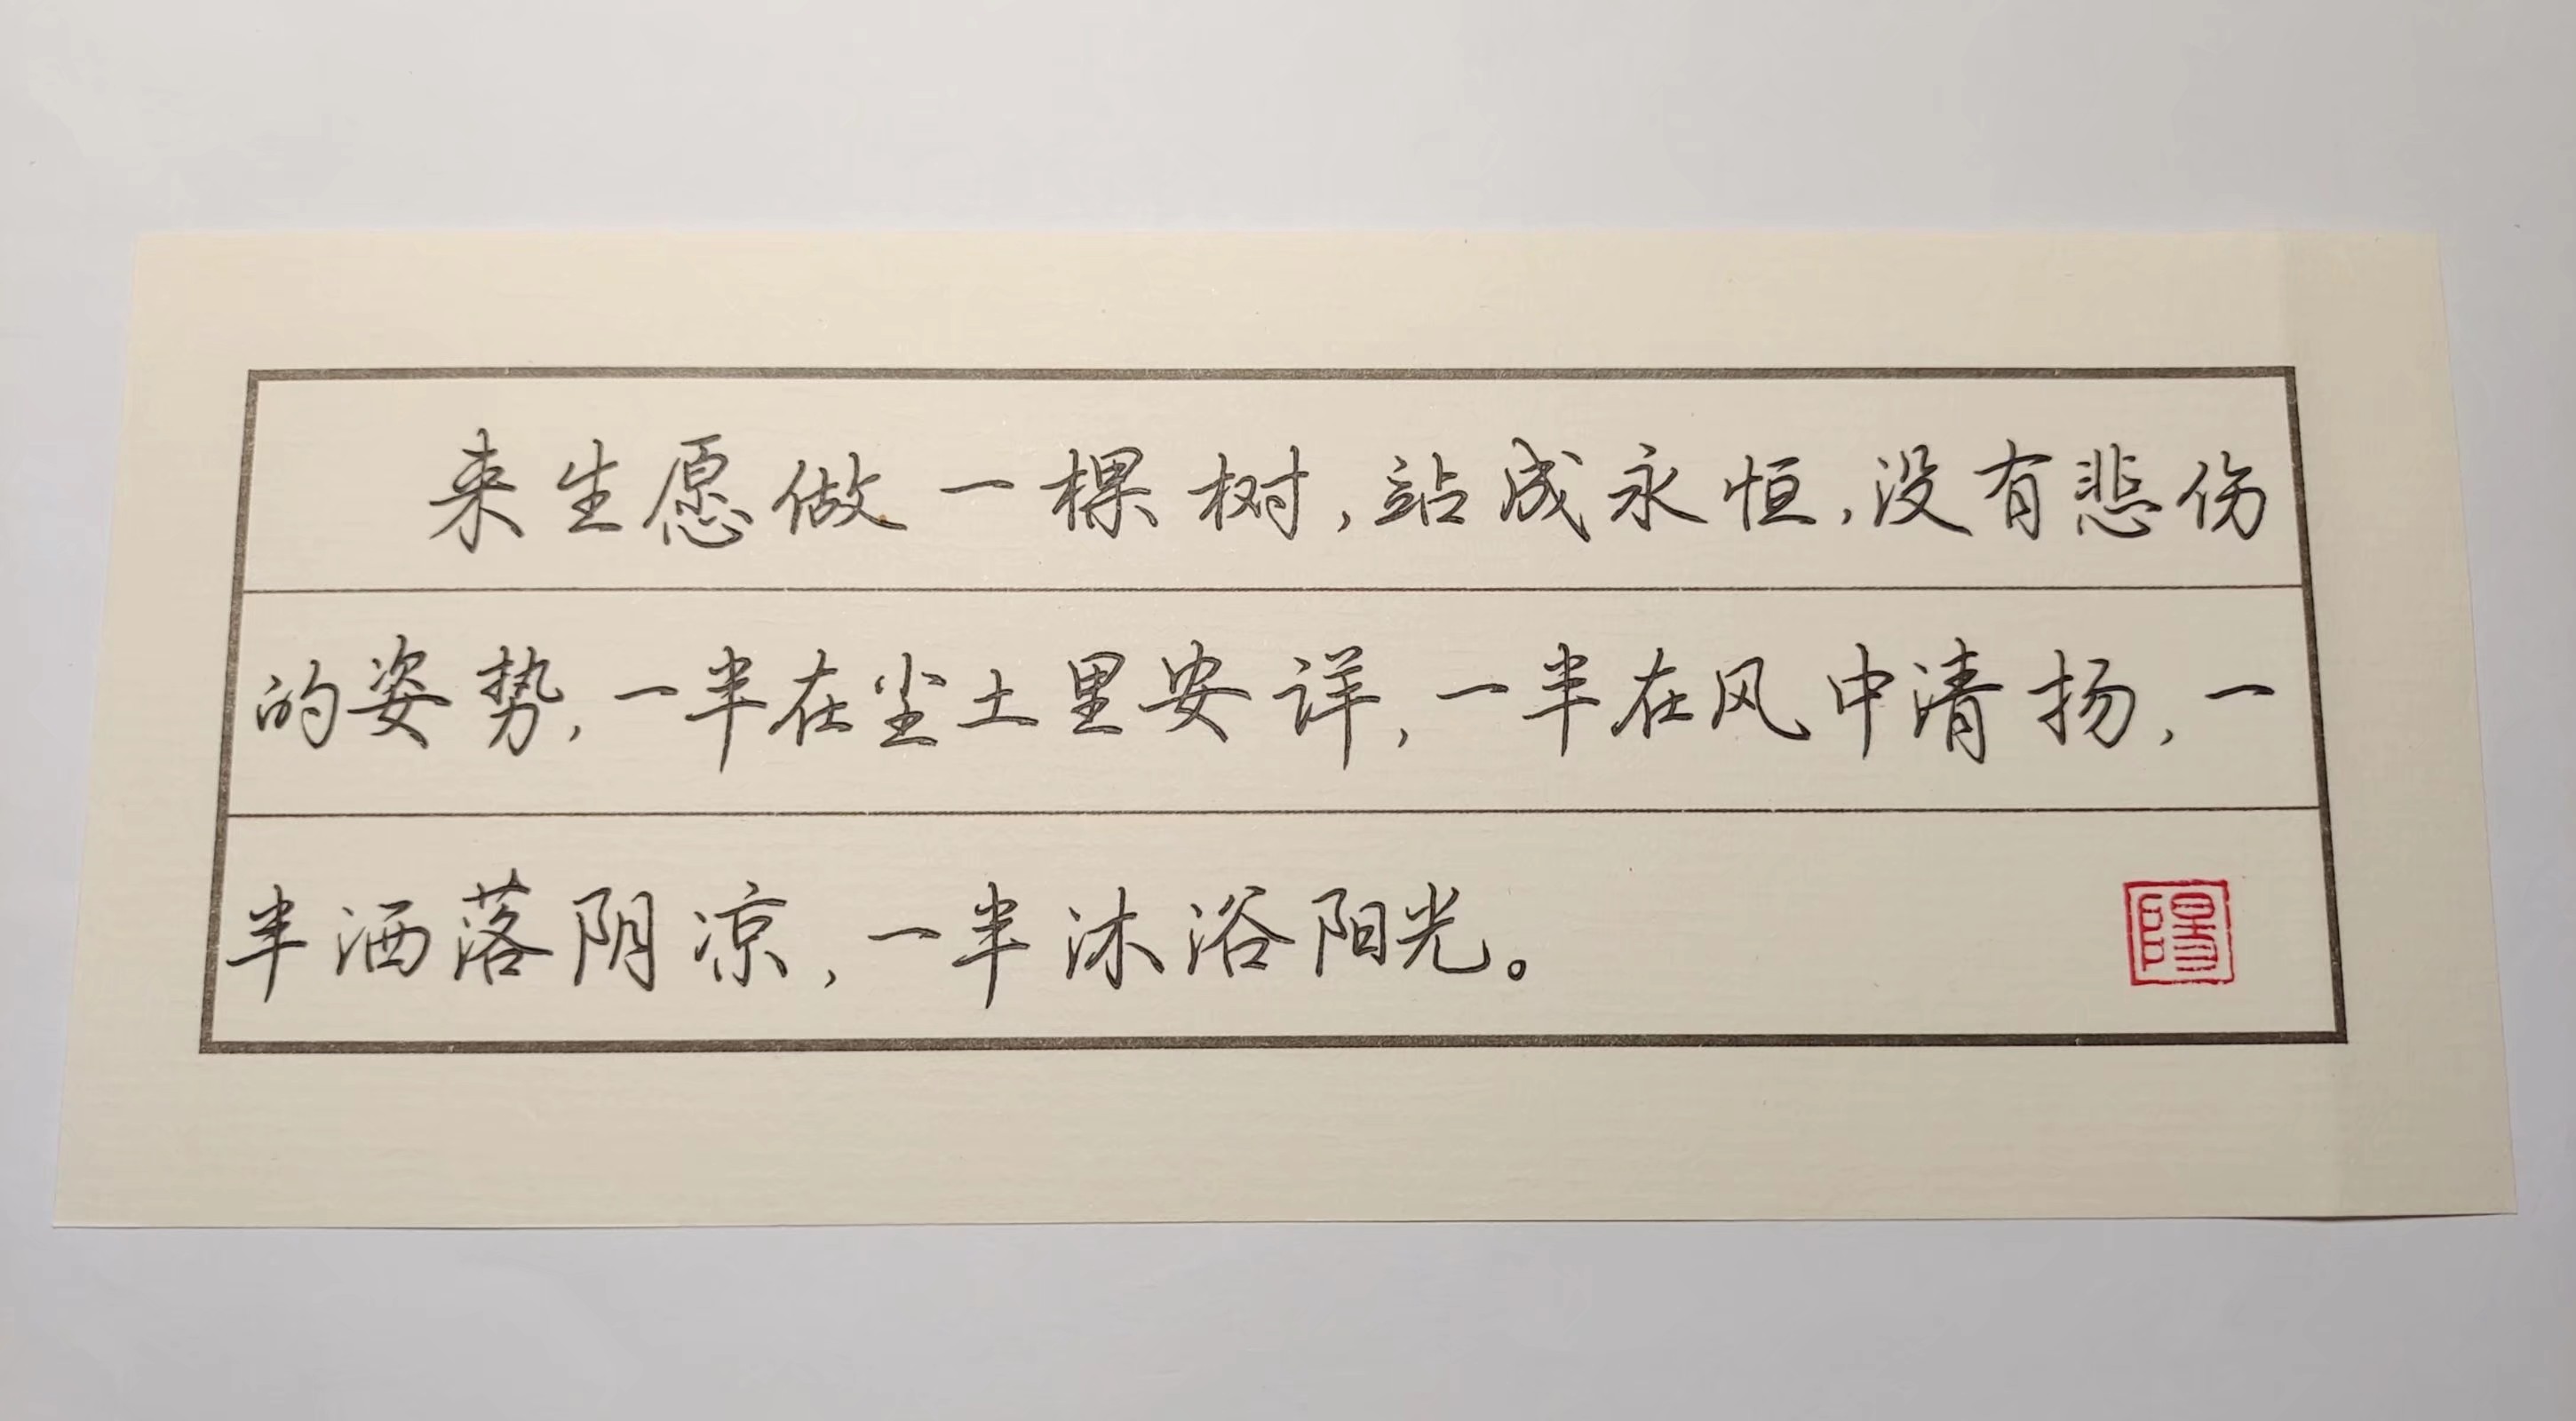 来生愿做一棵树,站成永恒,没有悲伤
的姿势,一半在尘土里安详,一半在风中清扬,一
半洒落阴凉,一半沐浴阳光。